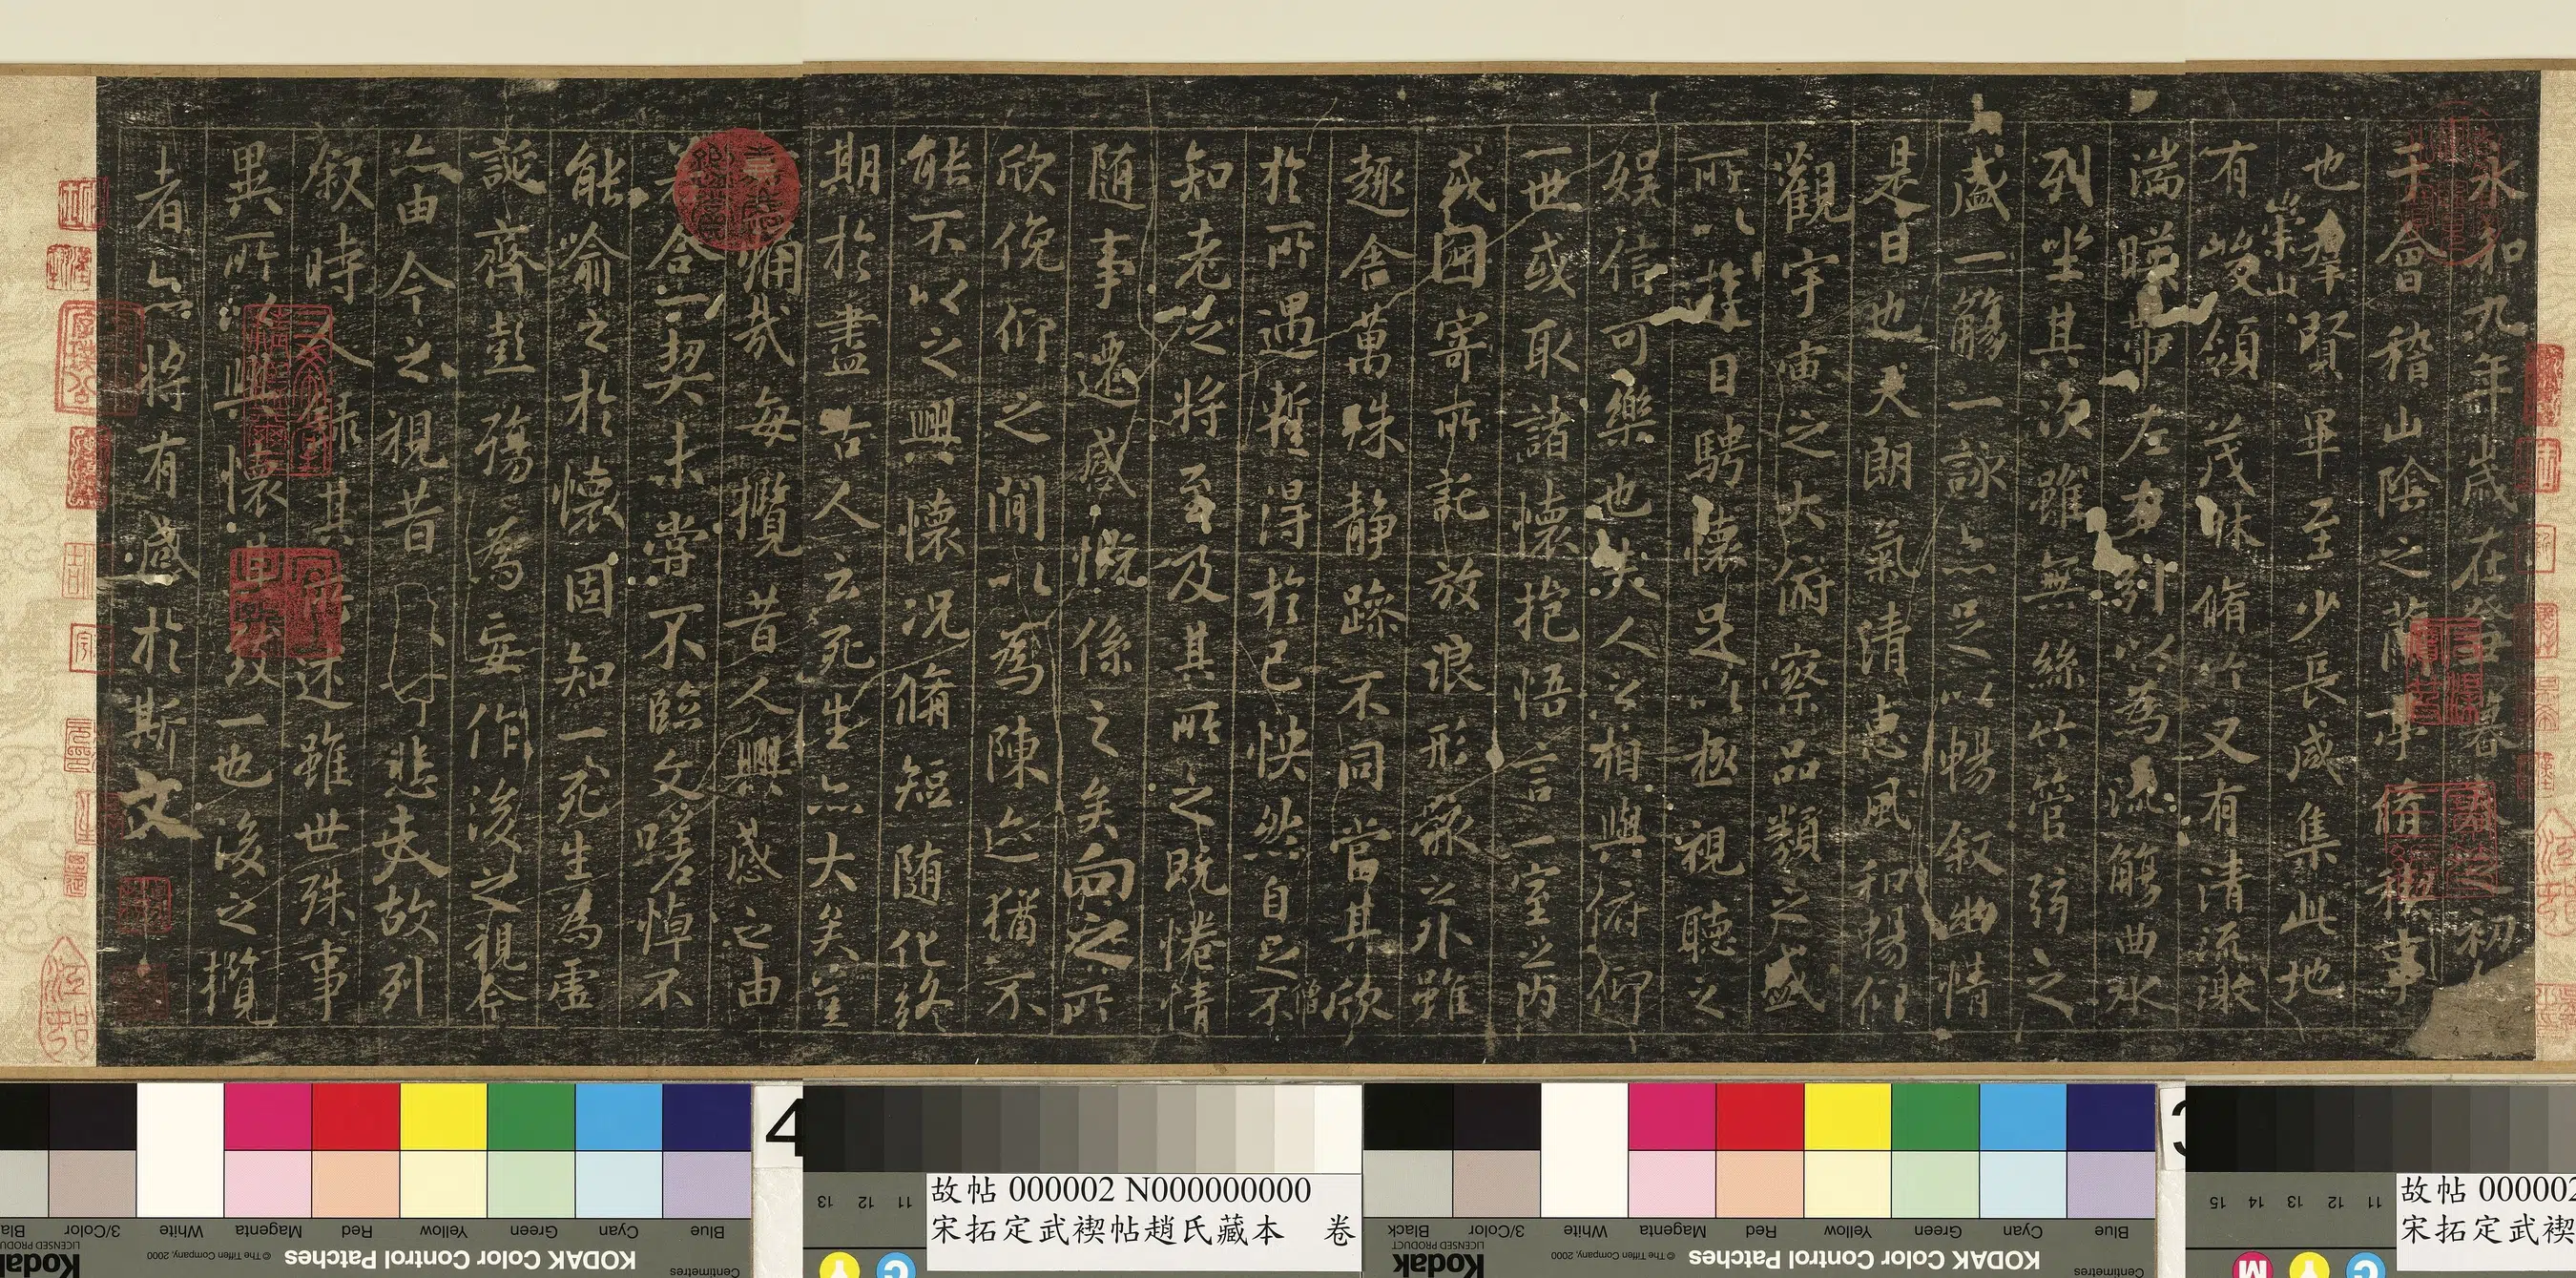 永和九年歲在癸丑暮春之初
于會稽山陰之蘭亭脩稧事
也羣賢畢至少長咸集此地
有崇山峻領茂林脩竹又有清流激
湍暎帶左右引以為流觴曲水
列坐其次雖無絲竹管弦之
盛一觴一詠亦足以暢叙幽情
是日也天朗氣清惠風和暢仰
觀宇宙之大俯察品類之盛
所以遊目騁懷足以極視聽之
娛信可樂也夫人之相與俯仰
一世或取諸懷抱悟言一室之內
或因寄所託放浪形骸之外雖
趣舍萬殊静躁不同當其欣
於所遇蹔得於己怏然自足不
知老之將至及其所之既惓情
随事遷感慨係之矣向之所
欣俛仰之間以為陳迹猶不
能不以之興懷況脩短随化終
期於盡古人云死生亦大矣豈
不痛哉每攬昔人興感之由
若合一契未嘗不臨文嗟悼不
能喻之於懷固知一死生為虛
誕齊彭殤為妄作後之視今
亦由今之視昔悲夫故列
叙時人錄其所述雖世殊事
異所以興懷其致一也後之攬
者亦將有感於斯文
僧
4
13 12 11
故帖 000002 N000000000
宋拓定武禊帖趙氏藏本 卷
15 14 13 12 11
故帖 000002
宋拓定武禊
Blue Cyan Green Yellow Red Magenta White 3/Color
KODAK Color Control Patches
© The Tiffen Company, 2000
Kodak
LICENSED PRODUCT
Centimetres
Blue Cyan Green Yellow Red Magenta White 3/Color Black
KODAK Color Control Patches
© The Tiffen Company, 2000
Kodak
LICENSED PRODUCT
Centimetres
Y C
M Y C